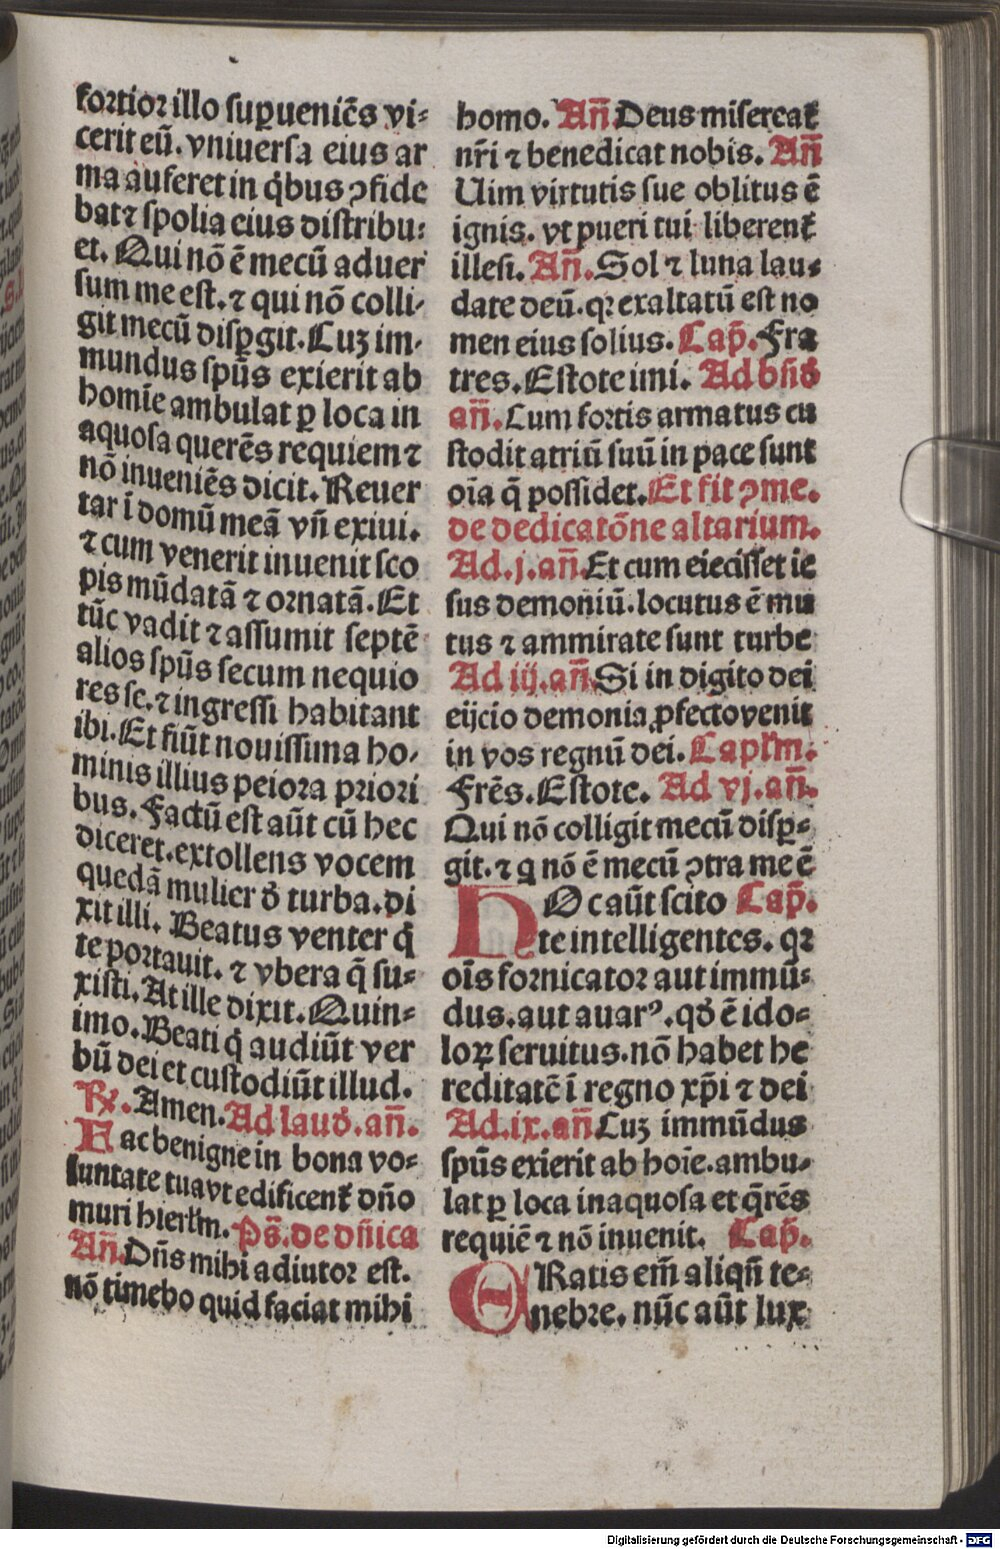 fortior illo suꝑueniēs vi⸗
cerit eū. vniuersa eius ar
ma auferet in q̇bus ꝯfide
bat ⁊ spolia eius distribu⸗
et. Qui nō ē mecū aduer
sum me est. ⁊ qui nō colli⸗
git mecū disꝑgit. Cuȝ im⸗
mundus spūs exierit ab
homīe ambulat ꝑ loca in
aquosa querēs requiem ⁊
nō inueniēs dicit. Reuer
tar ī domū meā vn̄ exiui.
⁊ cum venerit inuenit sco
pis mūdatā ⁊ ornatā. Et
tūc vadit ⁊ assumit septē
alios spūs secum nequio
res se. ⁊ ingressi habitant
ibi. Et fiūt nouissima ho⸗
minis illius peiora priori
bus. Factū est aūt cū hec
diceret. extollens vocem
quedā mulier ꝺ̄ turba. di
xit illi. Beatus venter q̇
te portauit. ⁊ vbera q̄ su⸗
xisti. At ille dixit. Quin⸗
imo. Beati q̇ audiūt ver
bū dei et custodiūt illud.
℞. Amen. Ad lauꝺ̄. an̄.
Fac benigne in bona vo⸗
luntate tua vt edificent᷑ dn̄o
muri hierl̄m. Ps̄. de dn̄ica
An̄. Dn̄s mihi adiutor est.
nō timebo quid faciat mihi
homo. An̄. Deus misereat᷑
nr̄i ⁊ benedicat nobis. An̄
Uim virtutis sue oblitus ē
ignis. vt pueri tui liberent᷑
illesi. An̄. Sol ⁊ luna lau⸗
date deū. qꝛ exaltatū est no
men eius solius. Cap̄. Fra
tres. Estote imi. Ad bn̄ꝺ̄
an̄. Cum fortis armatus cu
stodit atriū suū in pace sunt
oīa q̄ possidet. Et fit ꝯme.
de dedicatōne altarium.
Ad. j. an̄. Et cum eiecisset ie
sus demoniū. locutus ē mu
tus ⁊ ammirate sunt turbe
Ad iij. an̄. Si in digito dei
eijcio demonia ꝓfecto venit
in vos regnū dei. Capl̄m.
Frēs. Estote. Ad vj. an̄.
Qui nō colligit mecū disꝑ⸗
git. ⁊ q nō ē mecū ꝯtra me ē
HOc aūt scito Cap̄.
te intelligentes. qꝛ
oīs fornicator aut immū⸗
dus. aut auarꝰ. qꝺ̄ ē ido⸗
loꝝ seruitus. nō habet he
reditatē ī regno xp̄i ⁊ dei
Ad. ix. an̄ Cuȝ immūdus
spūs exierit ab hoīe. ambu⸗
lat ꝑ loca inaquosa et q̄rēs
requiē ⁊ nō inuenit. Cap̄.
ERatis em̄ aliqn̄ te⸗
nebre. nūc aūt lux
Digitalisierung gefördert durch die Deutsche Forschungsgemeinschaft - DFG